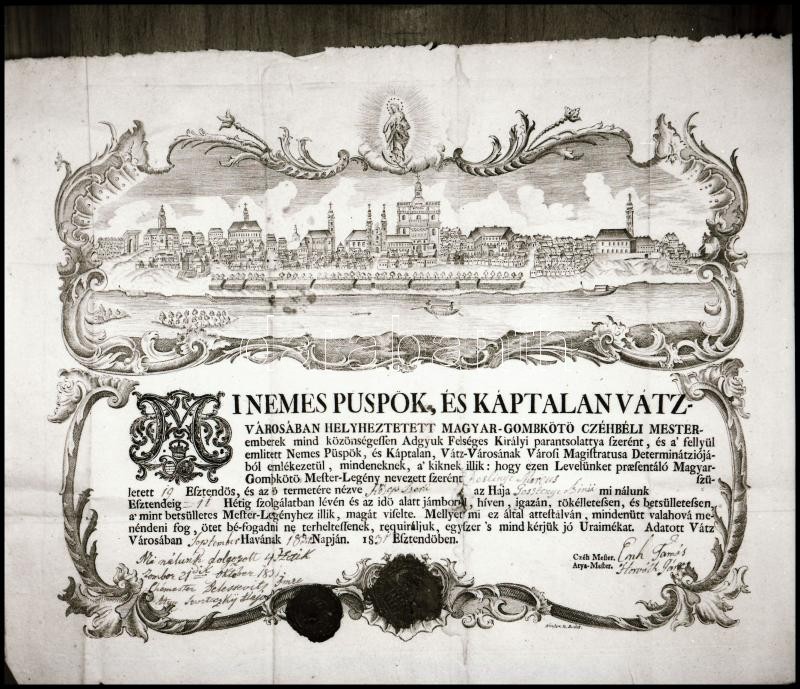 MI NEMES PÜSPÖK, ÉS KÁPTALAN VÁTZ-
VÁROSÁBAN HELYHEZTETETT MAGYAR-GOMBKÖTÖ CZÉHBÉLI MESTER-
emberek mind közönségeſſen Adgyuk Felséges Királyi parantsolattya ſzerént, és a' fellyül
emlitett Nemes Püspök, és Káptalan, Vátz-Városának Városi Magiſtratusa Determinátziójá-
ból emlékezetül, mindeneknek, a' kiknek illik: hogy ezen Levelünket præſentáló Magyar-
Gombkötö Meſter-Legény nevezett ſzerént ſzü-
letett 19 Eſztendös, és az ö termetére nézve az Haja mi nálunk
Eſztendeig 11 Hétig ſzolgálatban lévén és az idö alatt jámborul, híven, igazán, tökélleteſſen, és betsülleteſſen,
a' mint betsülletes Meſter-Legényhez illik, magát viſelte. Mellyet mi ez által atteſtálván, mindenütt valahová me-
néndeni fog, ötet bé-fogadni ne terhelteſſenek, requiráljuk, egyſzer 's mind kérjük jó Uraimékat. Adatott Vátz
Városában September Havának Napján. 18 Eſztendöben.
Czéh Meſter.
Atya-Meſter. Horváth
Mü nálunk dolgozott 4
Zombor 21 október